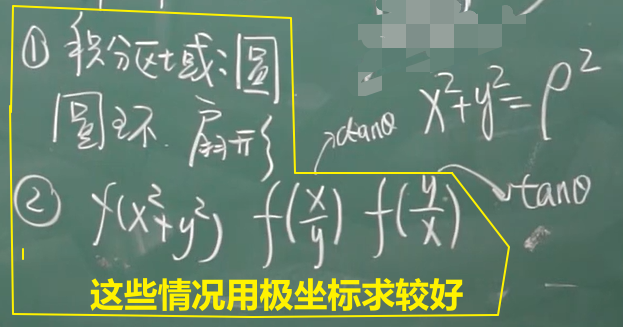 ① 积分区域:圆
圆环. 扇形
x²+y²=ρ²
② f(x²+y²) f(x/y) f(y/x)
→ctanθ
→tanθ
这些情况用极坐标求较好